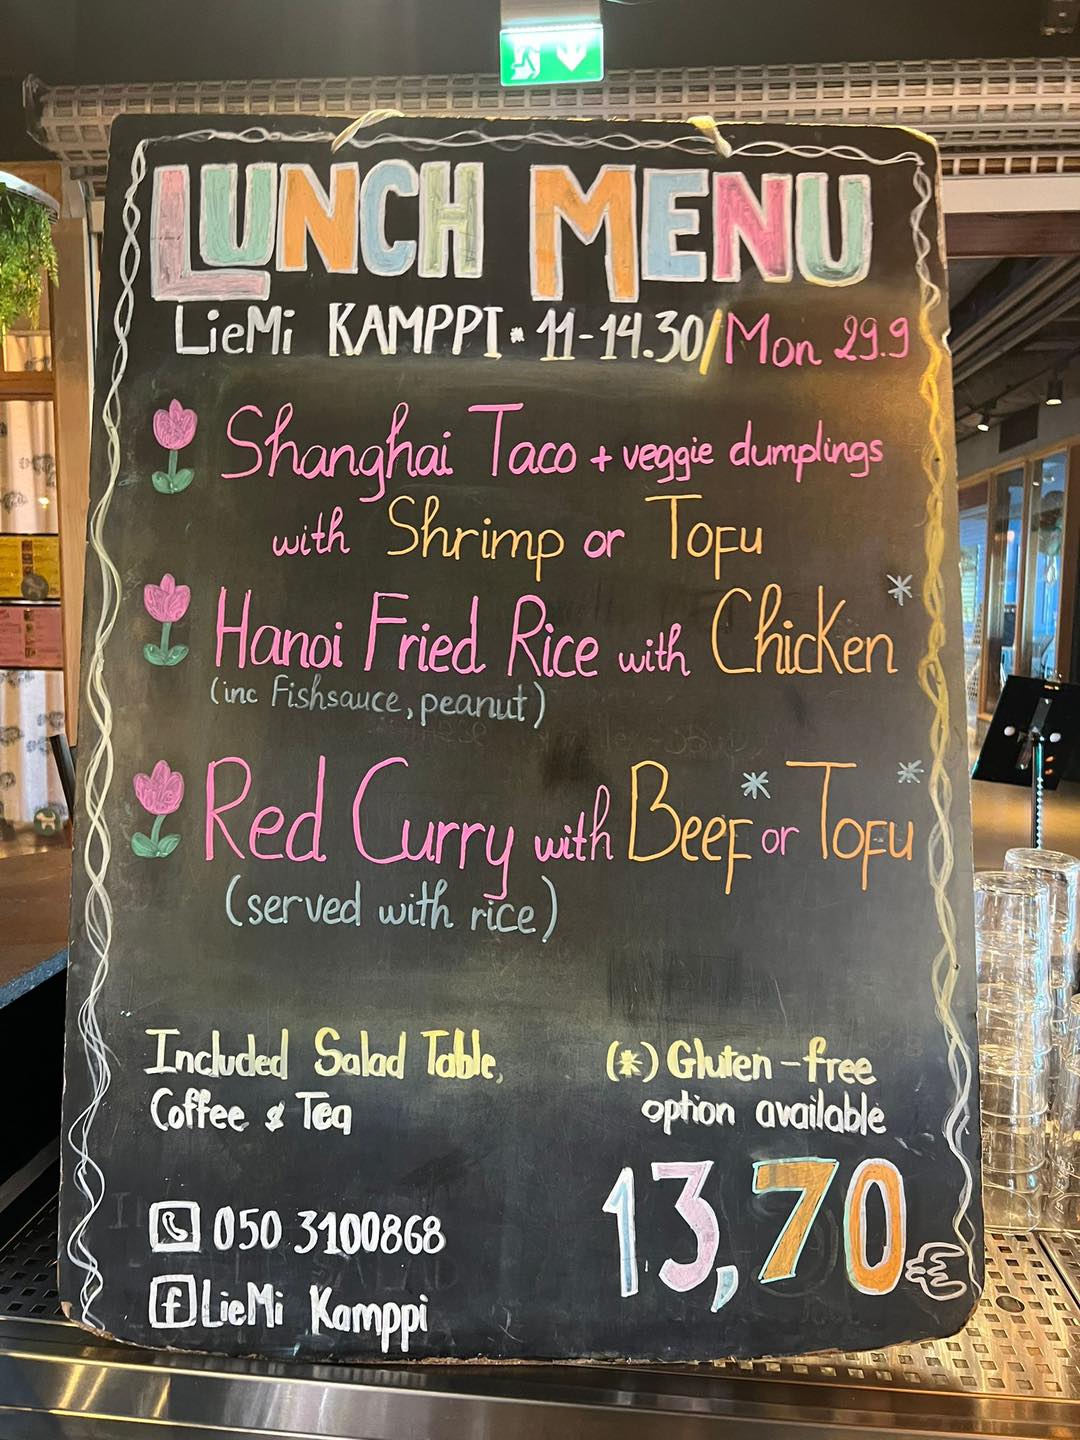 LUNCH MENU
LieMi KAMPPI * 11-14.30/Mon 29.9
Shanghai Taco + veggie dumplings
with Shrimp or Tofu
Hanoi Fried Rice with Chicken*
(inc Fishsauce, peanut)
Red Curry with Beef* or Tofu*
(served with rice)
Included Salad Table,
Coffee & Tea
(*) Gluten-free
option available
13,70€
050 3100868
f LieMi Kamppi